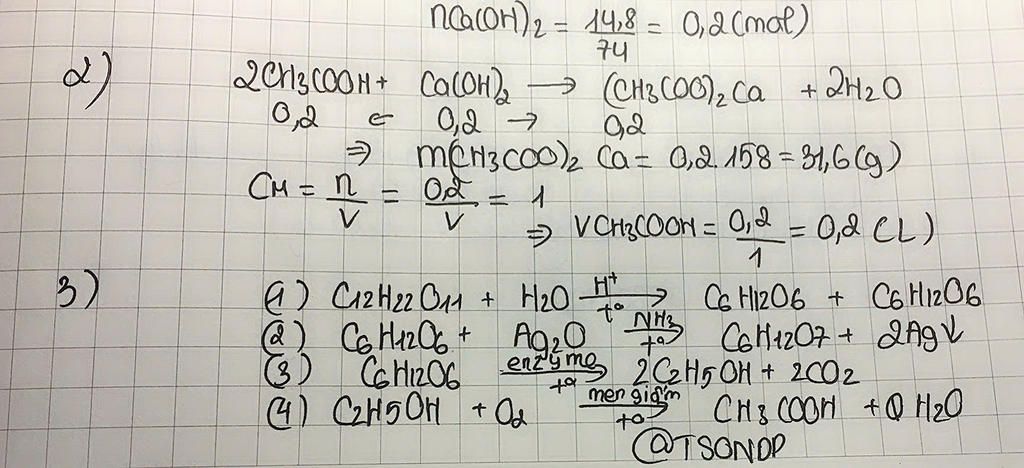 nCa(OH)2 = 14,8/74 = 0,2 (mol)
2) 2CH3COOH + Ca(OH)2 → (CH3COO)2Ca + 2H2O
0,2 ← 0,2 → 0,2
⇒ m(CH3COO)2 Ca = 0,2.158 = 31,6 (g)
CM = n/V = 0,2/V = 1
⇒ VCH3COOH = 0,2/1 = 0,2 (L)
3) (1) C12H22O11 + H2O H+ → to C6H12O6 + C6H12O6
(2) C6H12O6 + Ag2O NH3 → to C6H12O7 + 2Ag↓
(3) C6H12O6 enzyme → to 2C2H5OH + 2CO2
(4) C2H5OH + O2 men giấm → to CH3COOH + H2O
@TSONDD